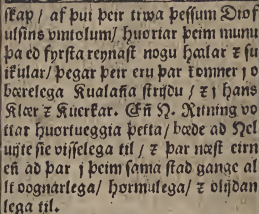 skap / af þui þeir trwa þessum Diof
ulsins vmtolum / huortar þeim munu
þa ed fyrsta reynast nogu hælar ꝛ su
ikular / þegar þeir eru þar komner j o
bærelega Kualafia strijdu / ꝛ j hans
Klær ꝛ Kuerkar. En̄ N. Ritning vo
ttar huortueggia þetta / bæde ad Hel
uijte sie visselega til / ꝛ þar næst eirn
en̄ ad þar j þeim sama stad gange al
lt oognarlega / hormulega / ꝛ olijdan
lega til.